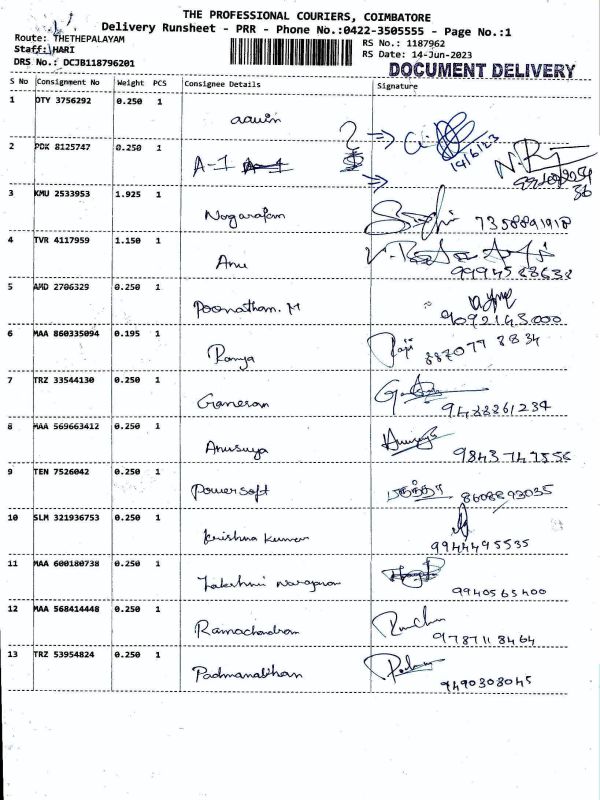 THE PROFESSIONAL COURIERS, COIMBATORE
Delivery Runsheet - PRR - Phone No.:0422-3505555 - Page No.:1
Route: THETHEPALAYAM
Staff: HARI
DRS No.: DCJB118796201
RS No.: 1187962
RS Date: 14-Jun-2023
DOCUMENT DELIVERY
S No Consignment No Weight PCS Consignee Details Signature
1 OTY 3756292 0.250 1 aavin
14/6/23
2 PDK 8125747 0.250 1 A-1
3 KMU 2533953 1.925 1 Nagarajan 7358891918
4 TVR 4117959 1.150 1 Anu 9994588638
5 AMD 2706329 0.250 1 Poonathan. M 9092143000
6 MAA 860335094 0.195 1 Ramya Raji 887077 8834
7 TRZ 33544130 0.250 1 Ganesan 9488861234
8 MAA 569663412 0.250 1 Anusuya 9843747556
9 TEN 7526042 0.250 1 Powersoft 8608893035
10 SLM 321936753 0.250 1 Krishna Kumar 9944495535
11 MAA 600180738 0.250 1 Lakshmi Narayanan 9940565400
12 MAA 568414448 0.250 1 Ramachandran 9787118464
13 TRZ 53954824 0.250 1 Padmanabhan 9490308045